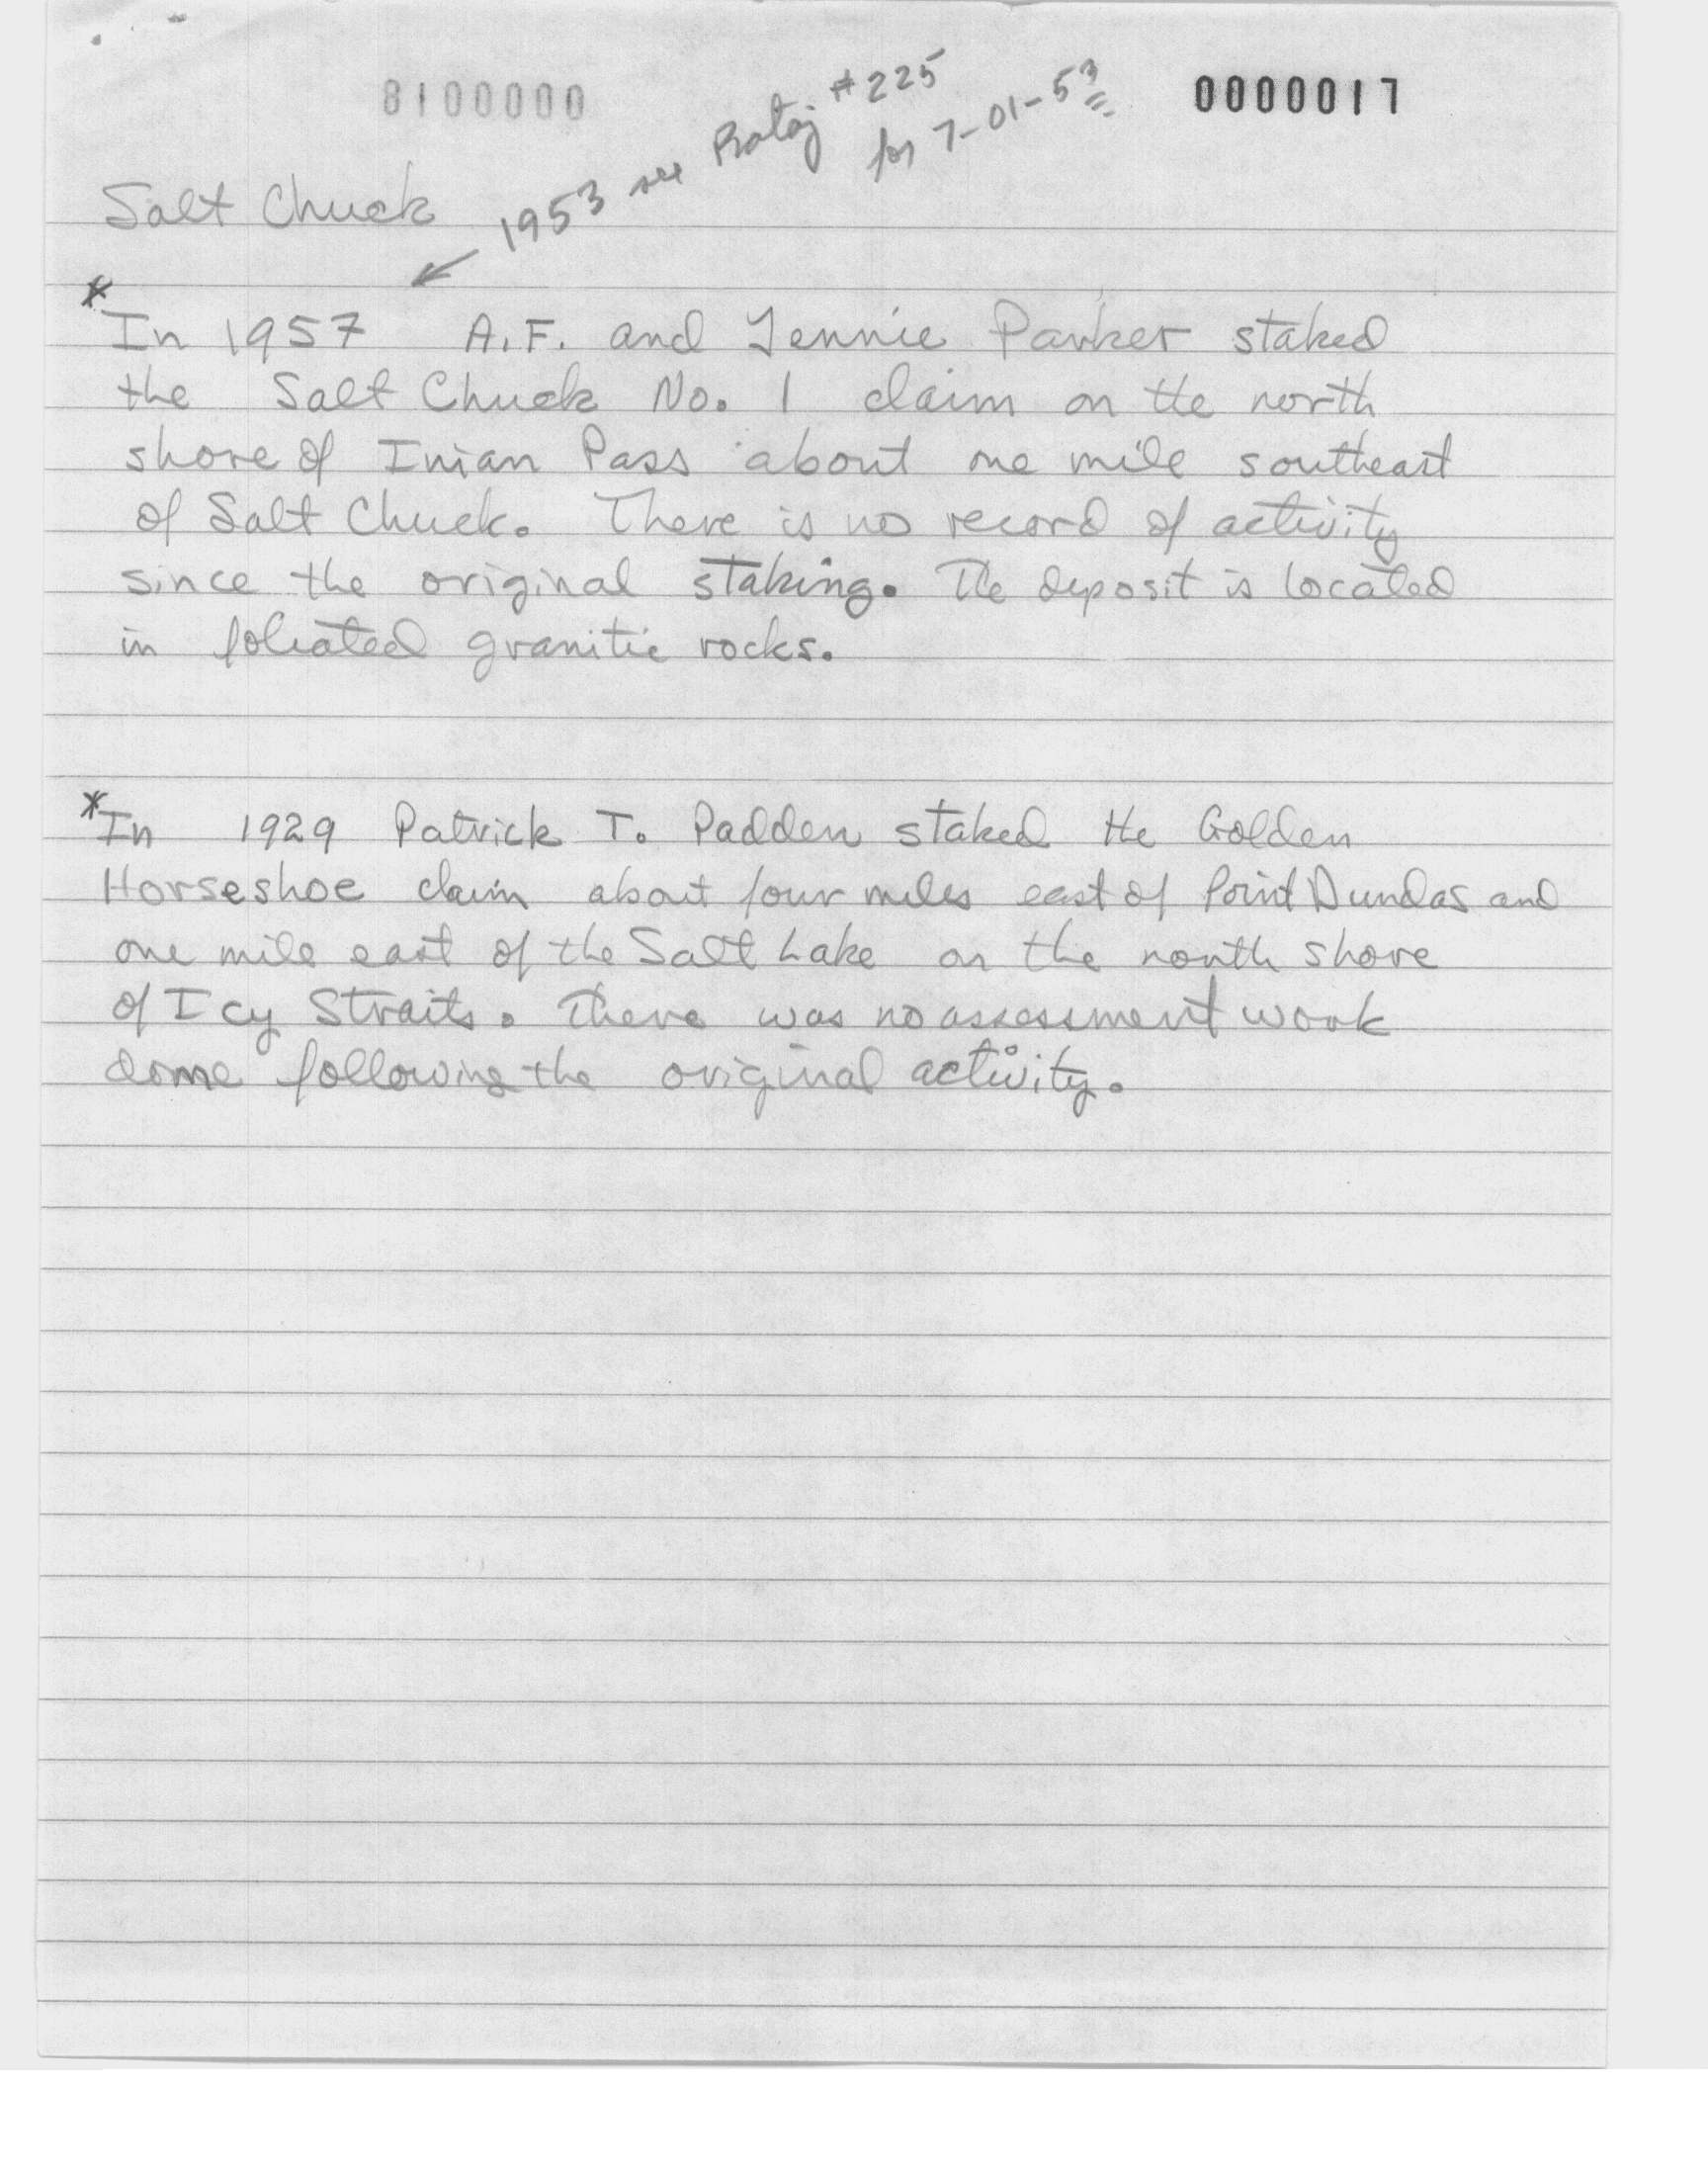 0000018
0000017
1953 see Rataj #225
for 7-01-53
Salt Chuck
*In 1957 A.F. and Jennie Parker staked
the Salt Chuck No. 1 claim on the north
shore of Inian Pass about one mile southeast
of Salt Chuck. There is no record of activity
since the original staking. The deposit is located
in foliated granitic rocks.
*In 1929 Patrick T. Padden staked the Golden
Horseshoe claim about four miles east of Point Dundas and
one mile east of the Salt Lake on the north shore
of Icy Straits. There was no assessment work
done following the original activity.